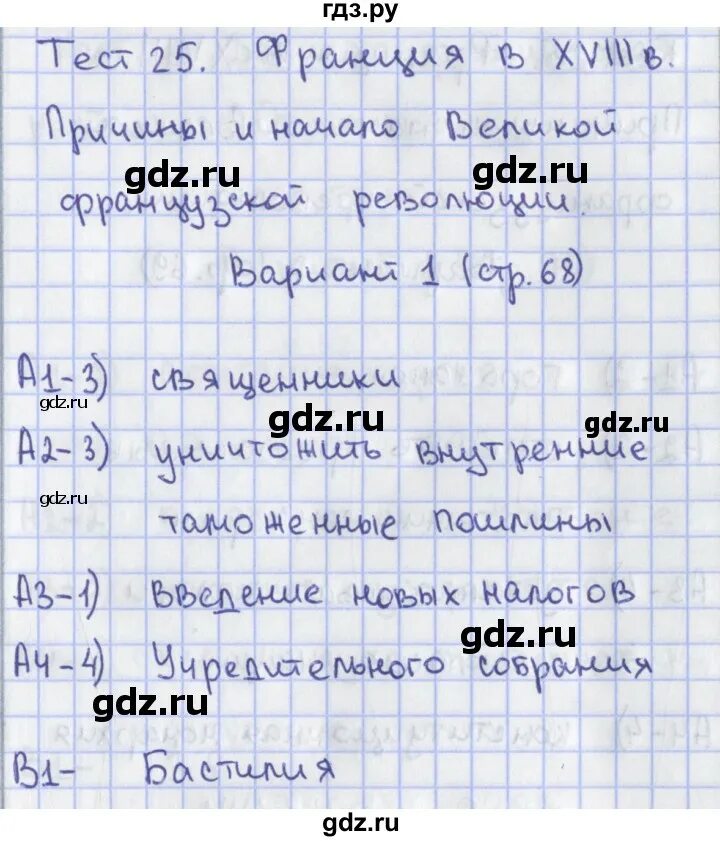 гдз.ру
Тест 25. Франция в XVIII в.
Причины и начало Великой
gdz.ru gdz.ru
французской революции.
Вариант 1 (стр. 68)
А1-3) священники
gdz.ru gdz.ru gdz.ru
А2-3) уничтожить внутренние
gdz.ru
таможенные пошлины
А3-1) введение новых налогов
gdz.ru
А4-4) Учредительного собрания
gdz.ru
В1- Бастилия
gdz.ru